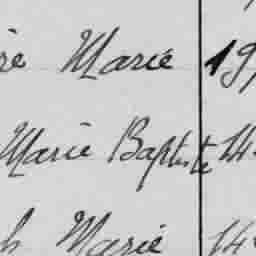 re Marie 19
Marie Baptiste 14
h Marie 14